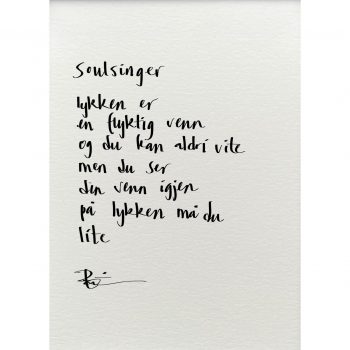 soulsinger
lykken er
en flyktig venn
og du kan aldri vite
men du ser
din venn igjen
på lykken må du
lite